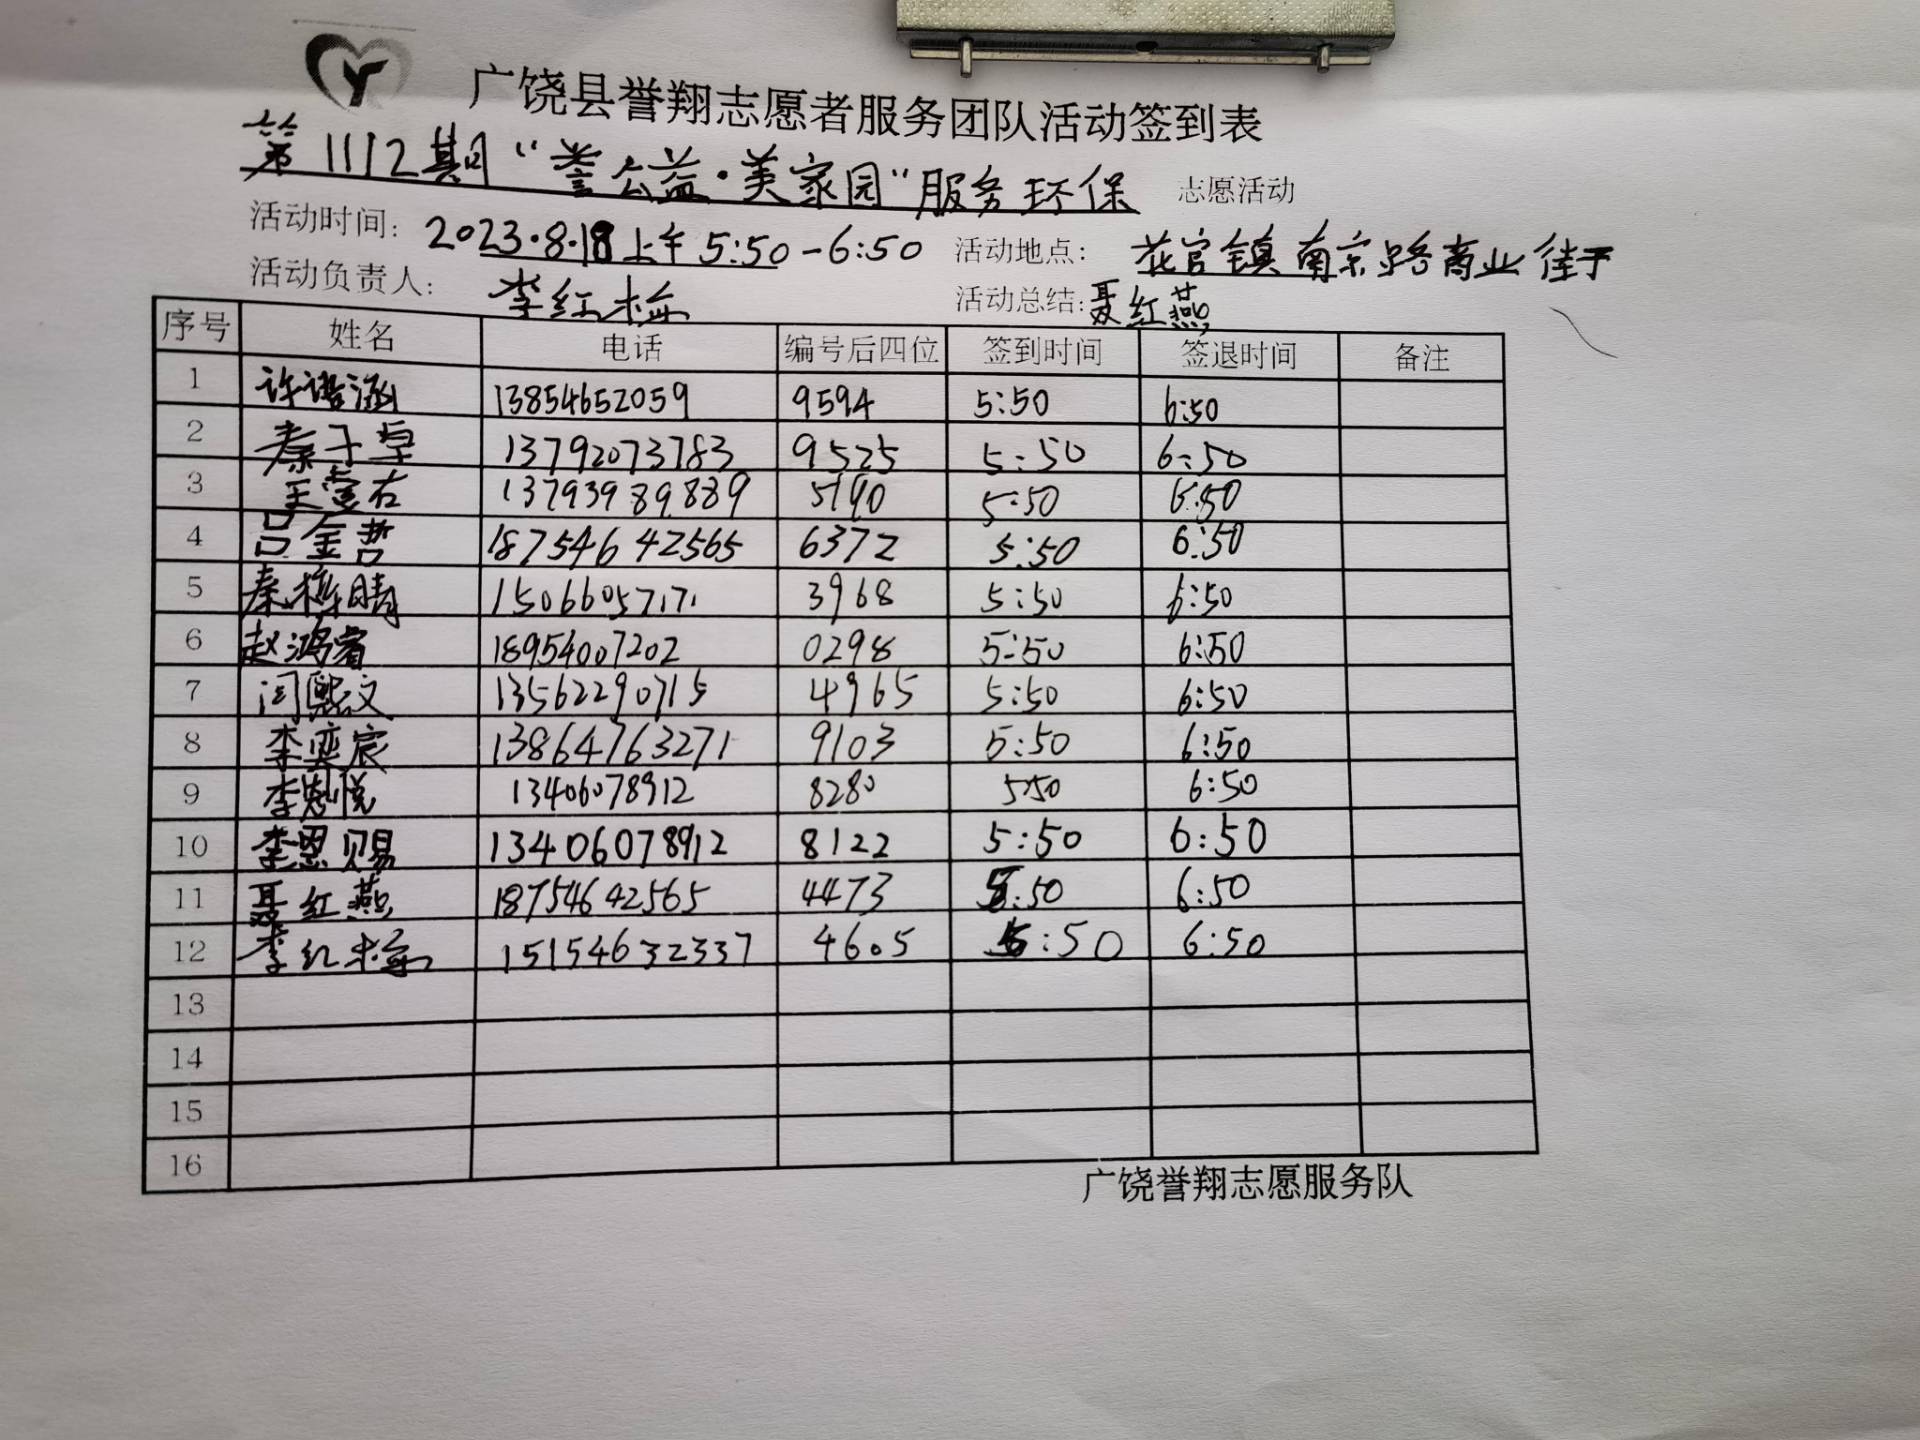 广饶县誉翔志愿者服务团队活动签到表
第1112期“誉公益·美家园”服务环保 志愿活动
活动时间: 2023.8.18上午5:50-6:50 活动地点: 花官镇南京路商业街
活动负责人: 李红梅 活动总结: 聂红燕
序号 姓名 电话 编号后四位 签到时间 签退时间 备注
1 许诺涵 13854652059 9594 5:50 6:50
2 秦子卓 13792073783 9525 5:50 6:50
3 王 右 13793989889 5190 5:50 6:50
4 吕金哲 18754642565 6372 5:50 6:50
5 秦 晴 15066057171 3968 5:50 6:50
6 赵鸿睿 18954007202 0298 5:50 6:50
7 闫熙文 13562290715 4965 5:50 6:50
8 李奕宸 13864763271 9103 5:50 6:50
9 李 悦 13406078912 8280 5:50 6:50
10 李恩赐 13406078912 8122 5:50 6:50
11 聂红燕 18754642565 4473 5:50 6:50
12 李红梅 15154632337 4605 5:50 6:50
13
14
15
16
广饶誉翔志愿服务队